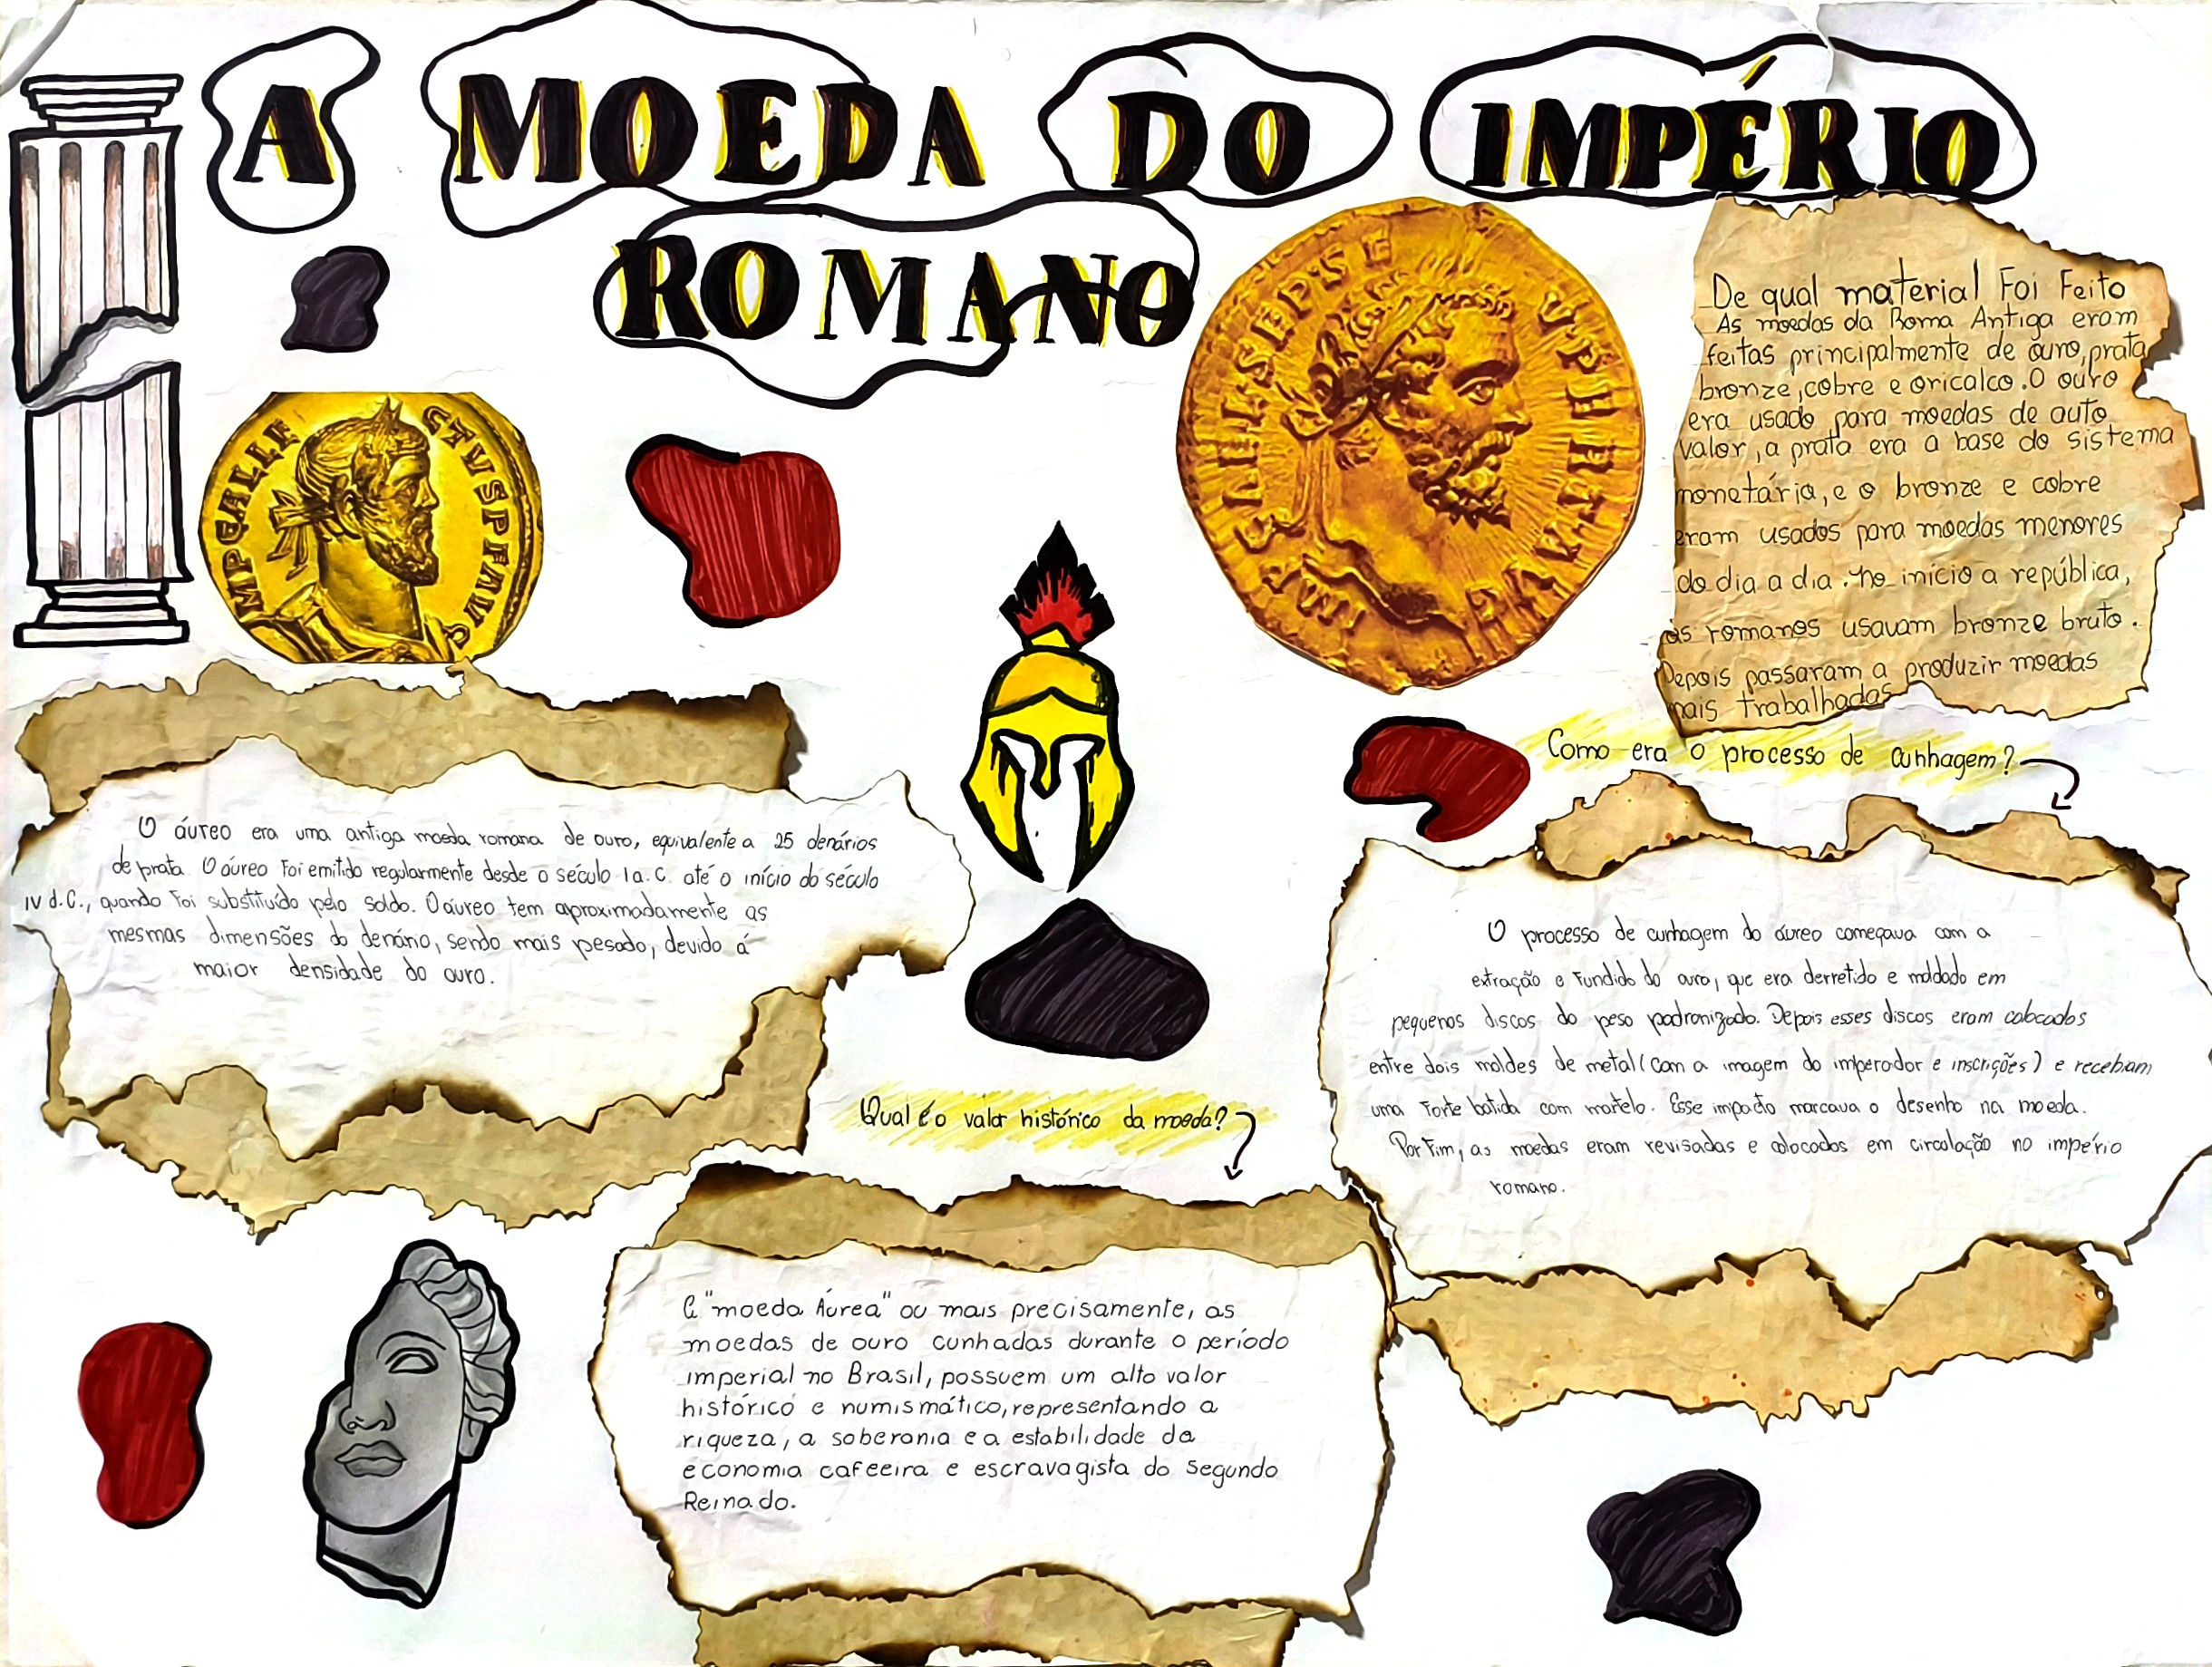 A MOEDA DO IMPÉRIO
ROMANO
IMP C ALLE CTVS P F AVG
De qual material Foi Feito
As moedas da Roma Antiga eram
feitas principalmente de ouro, prata
bronze, cobre e oricalco. O ouro
era usado para moedas de auto
valor, a prata era a base do sistema
monetária, e o bronze e cobre
eram usados para moedas menores
do dia a dia. no início a república,
os romanos usavam bronze bruto.
Depois passaram a produzir moedas
mais trabalhadas
O áureo era uma antiga moeda romana de ouro, equivalente a 25 denários
de prata. O áureo Foi emitido regularmente desde o século I a.C. até o início do século
IV d.C., quando Foi substituído pelo soldo. O áureo tem aproximadamente as
mesmas dimensões do denário, sendo mais pesado, devido á
maior densidade do ouro.
Como era o processo de cunhagem?
O processo de cunhagem do áureo começava com a
extração e Fundido do ouro, que era derretido e moldado em
pequenos discos do peso padronizado. Depois esses discos eram colocados
entre dois moldes de metal (com a imagem do imperador e inscrições) e recebiam
uma Forte batida com martelo. Esse impacto marcava o desenho na moeda.
Por Fim, as moedas eram revisadas e colocados em circulação no império
romano.
Qual é o valor histórico da moeda?
A "moeda Áurea" ou mais precisamente, as
moedas de ouro cunhadas durante o período
imperial no Brasil, possuem um alto valor
histórico e numismático, representando a
riqueza, a soberania e a estabilidade da
economia cafeeira e escravagista do Segundo
Reinado.